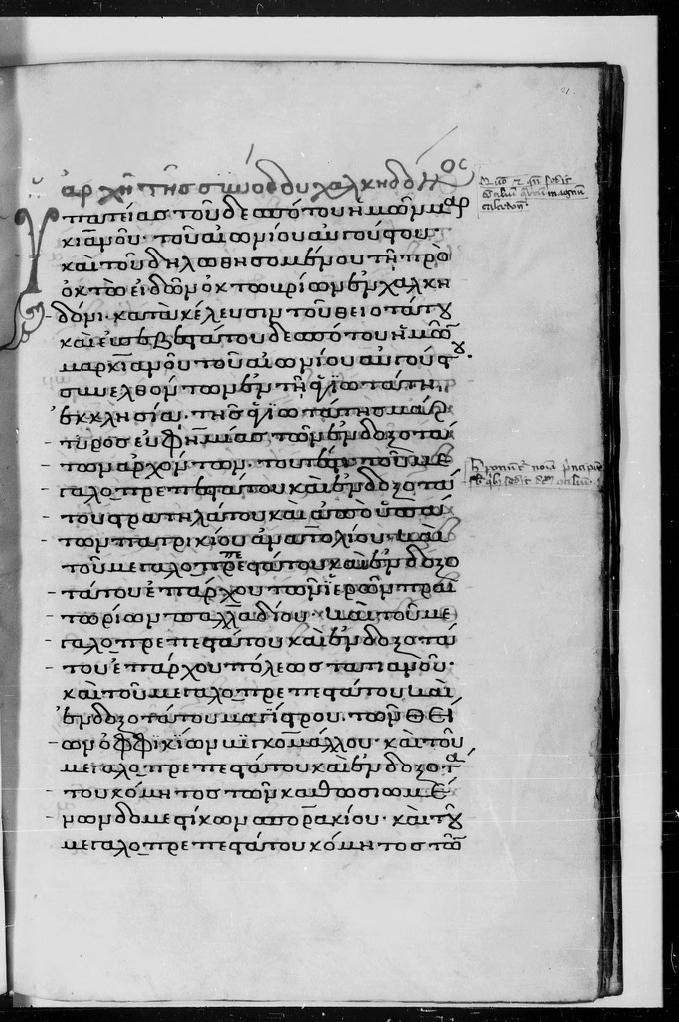 ἀρχὴ τῆς συνόδου χαλκηδόνος
Ὑπατείας τοῦ δεσπότου ἡμῶν μαρ
κιανοῦ· τοῦ αἰωνίου αὐγούστου·
καὶ τοῦ δηλωθησομένου τῇ πρὸ
ὀκτὼ εἰδῶν ὀκτωυρίων ἐν χαλκη
δόνι· κατὰ κέλευσιν τοῦ θειοτάτου
καὶ εὐσεβεστάτου δεσπότου ἡμῶν
μαρκιανοῦ τοῦ αἰωνίου αὐγούστου·
συνελθόντων ἐν τῇ ἁγιωτάτῃ
ἐκκλησίᾳ· τῆς ἁγιωτάτης μάρ
τυρος εὐφημίας τῶν ἐνδοξοτά
των ἀρχόντων· τουτέστι τοῦ με
γαλοπρεπεστάτου καὶ ἐνδοξοτά
του στρατηλάτου καὶ ἀπὸ ὑπά
των πατρικίου ἀνατολίου· καὶ
τοῦ μεγαλοπρεπεστάτου καὶ ἐνδοξο
τάτου ἐπάρχου τῶν ἱερῶν πραι
τωρίων παλλαδίου· καὶ τοῦ με
γαλοπρεπεστάτου καὶ ἐνδοξοτά
του ἐπάρχου πόλεως τατιανοῦ·
καὶ τοῦ μεγαλοπρεπεστάτου καὶ
ἐνδοξοτάτου μαγίστρου· τῶν θεί
ων ὀφφικίων βιγκομάλλου· καὶ τοῦ
μεγαλοπρεπεστάτου καὶ ἐνδοξοτά
του κόμητος τῶν καθωσιωμέ
νων δομεστίκων σπορακίου· καὶ τοῦ
μεγαλοπρεπεστάτου κόμητος τῶν